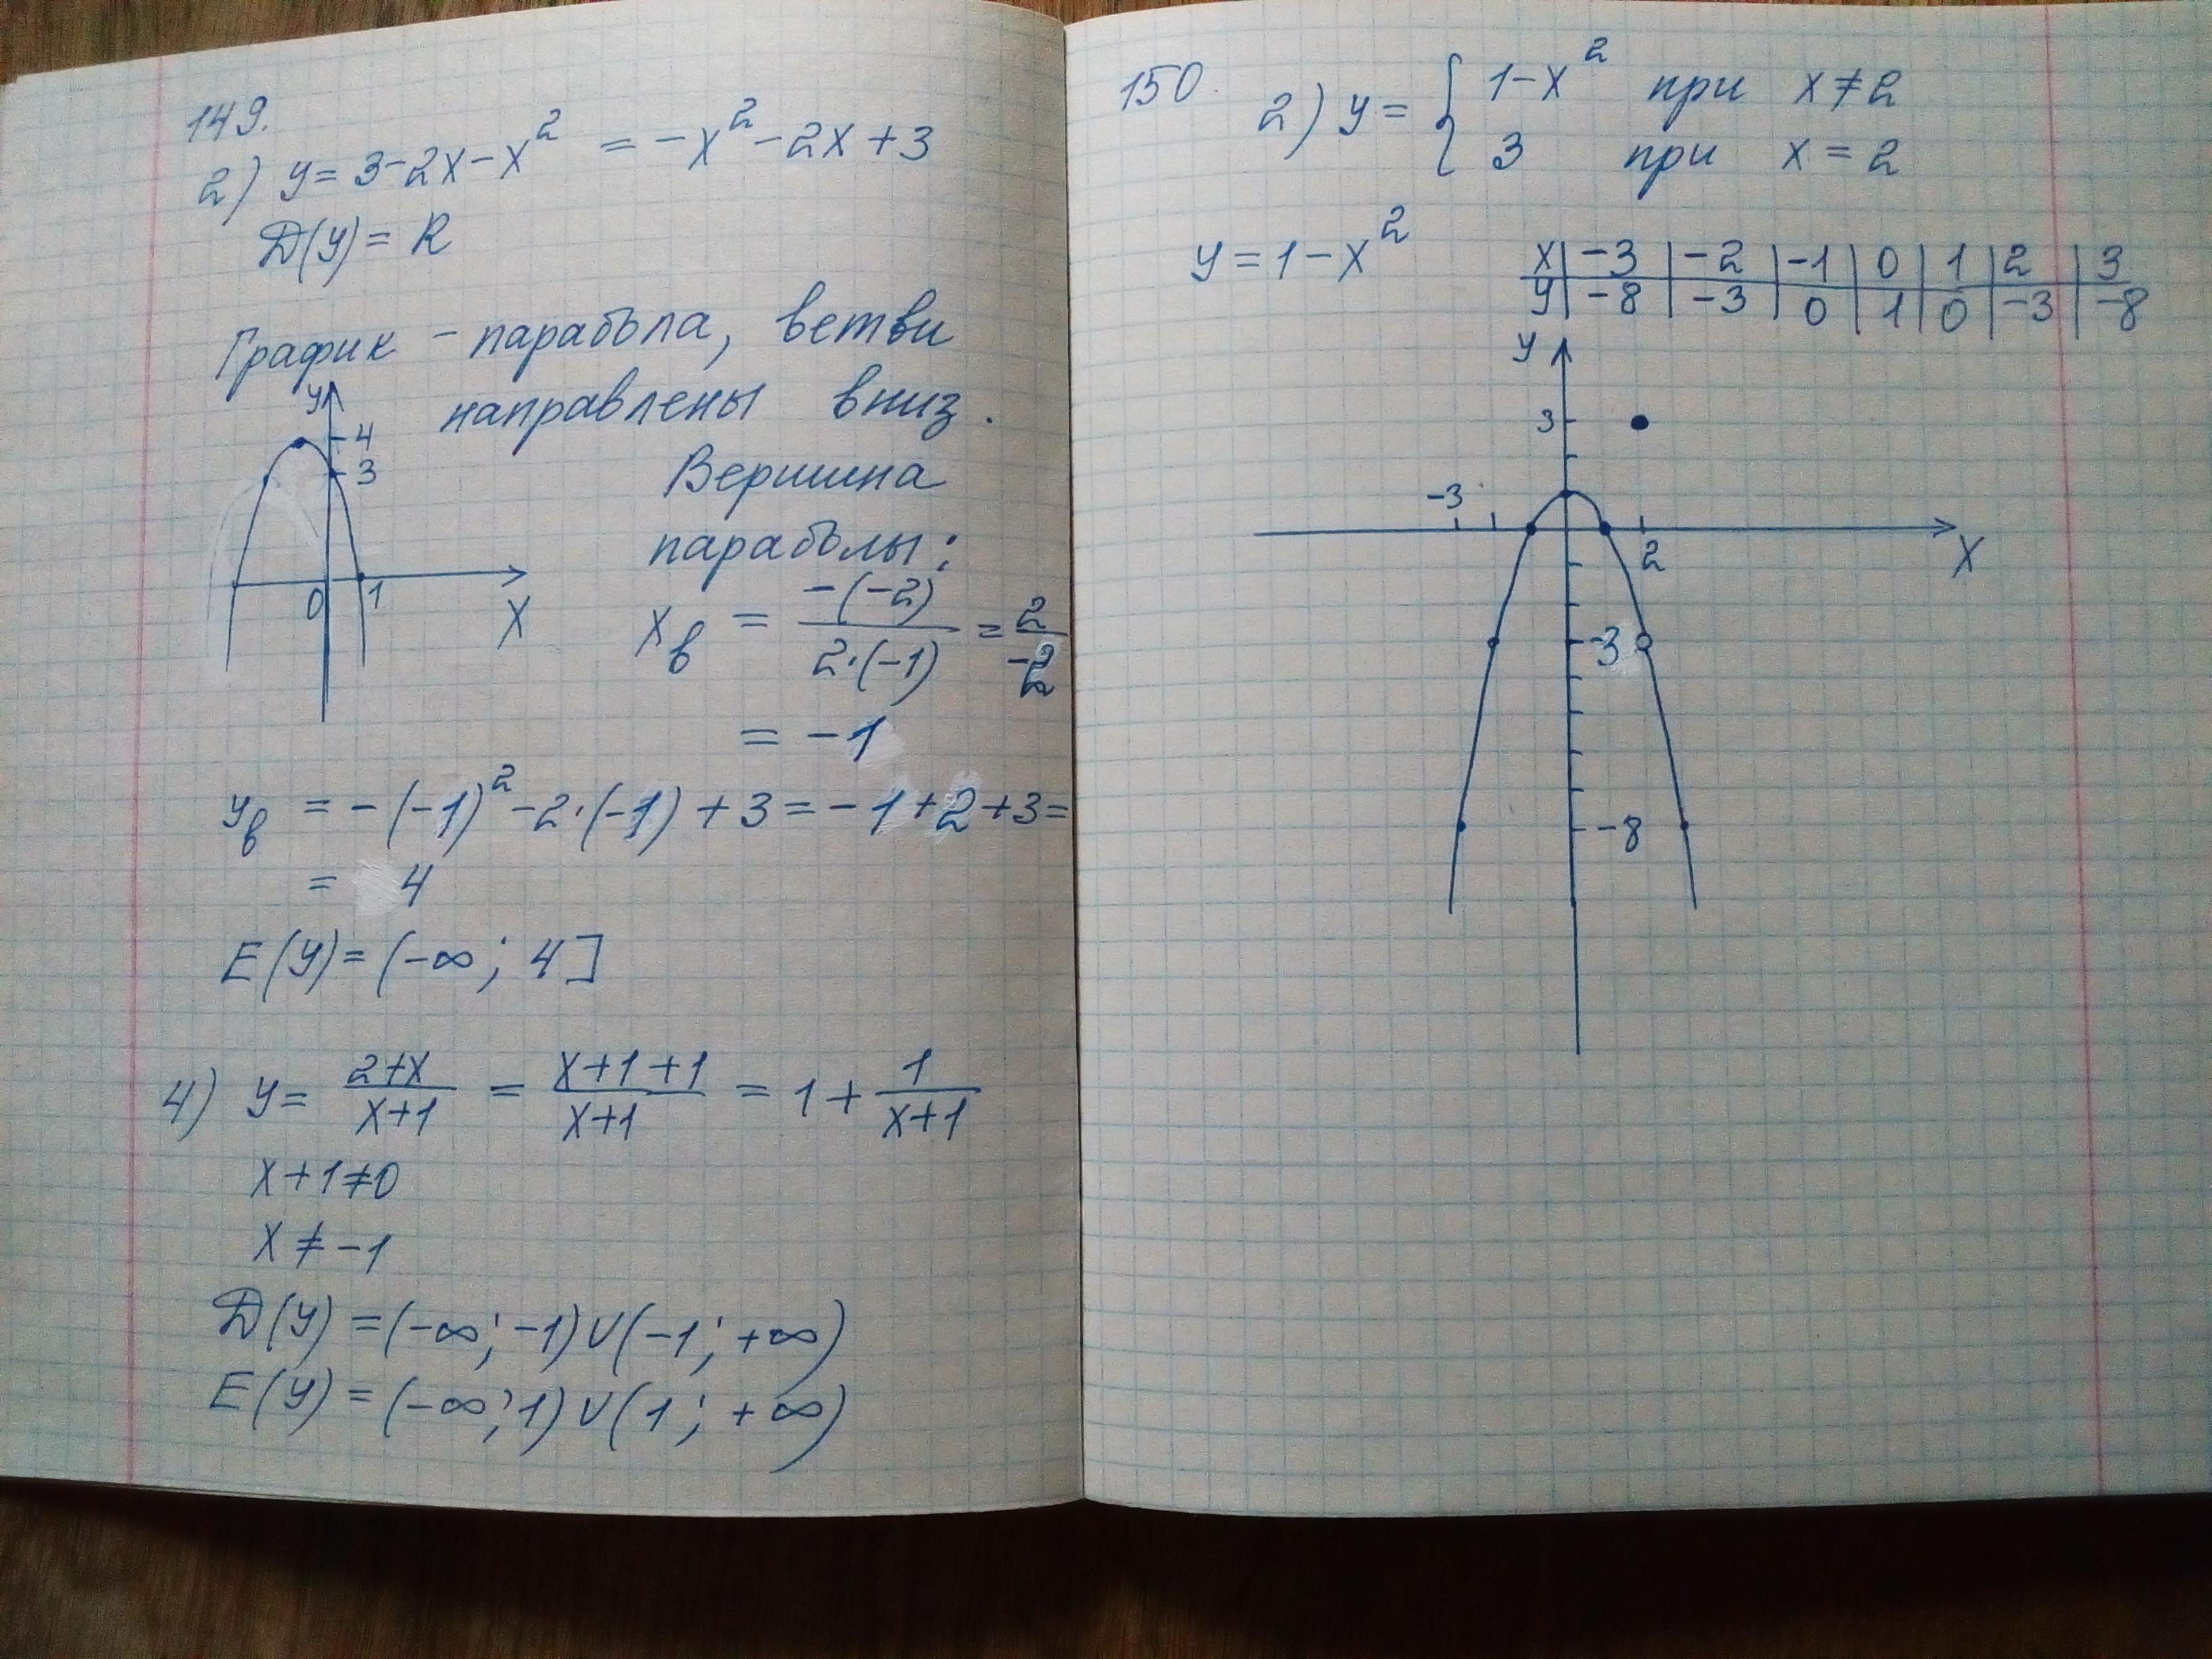 149.
2) y = 3-2x-x² = -x²-2x+3
D(y) = R
График - парабола, ветви
направлены вниз.
y
4
3
0
1
X
Вершина
параболы:
x_в = -(-2) / 2·(-1) = 2 / -2
= -1
y_в = -(-1)²-2·(-1)+3 = -1+2+3=
= 4
E(y) = (-∞; 4]
4) y = 2+x / x+1 = x+1+1 / x+1 = 1 + 1 / x+1
x+1≠0
x ≠ -1
D(y) = (-∞; -1) ∪ (-1; +∞)
E(y) = (-∞; 1) ∪ (1; +∞)
150.
2) y = { 1-x² при x ≠ 2
3 при x = 2
y = 1-x²
x | -3 | -2 | -1 | 0 | 1 | 2 | 3
y | -8 | -3 | 0 | 1 | 0 | -3 | -8
y
3
-3
2
X
-3
-8